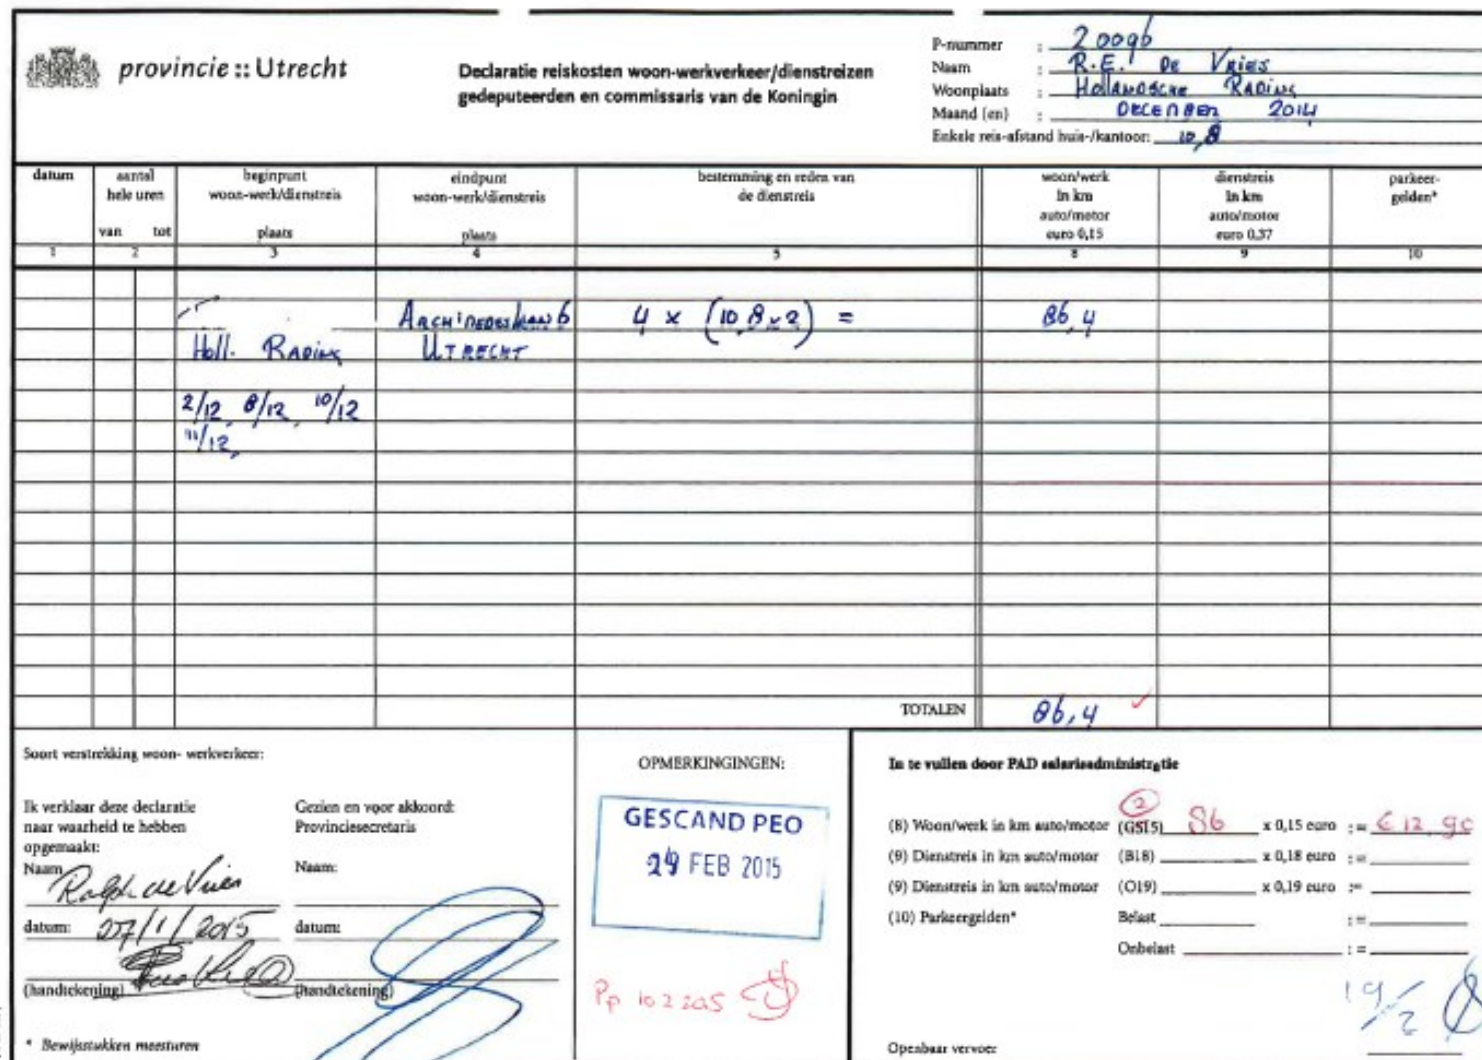 provincie :: Utrecht
Declaratie reiskosten woon-werkverkeer/dienstreizen
gedeputeerden en commissaris van de Koningin
P-nummer : 20096
Naam : R.E. De Vries
Woonplaats : Hollandsche Rading
Maand (en) : December 2014
Enkele reis-afstand huis-/kantoor: 10,8
datum
aantal hele uren van tot
beginpunt woon-werk/dienstreis plaats
eindpunt woon-werk/dienstreis plaats
bestemming en reden van de dienstreis
woon/werk in km auto/motor euro 0,15
dienstreis in km auto/motor euro 0,37
parkeer-gelden*
1 2 3 4 5 8 9 10
Archimedeslaan 6 4 x (10,8 x 2) = 86,4
Holl. Rading Utrecht
2/12, 8/12, 10/12
11/12,
TOTALEN 86,4
Soort verstrekking woon- werkverkeer:
Ik verklaar deze declaratie
naar waarheid te hebben
opgemaakt:
Naam Ralph de Vries
datum: 27/1/2015
(handtekening)
Gezien en voor akkoord:
Provinciesecretaris
Naam:
datum:
(handtekening)
* Bewijsstukken meesturen
OPMERKINGINGEN:
GESCAND PEO
FEB 2015
In te vullen door PAD salarisadministratie
(8) Woon/werk in km auto/motor (GS15) 86 x 0,15 euro := € 12,90
(9) Dienstreis in km auto/motor (B18) x 0,18 euro :=
(9) Dienstreis in km auto/motor (O19) x 0,19 euro :=
(10) Parkeergelden* Belast :=
Onbelast :=
19/2
Openbaar vervoer